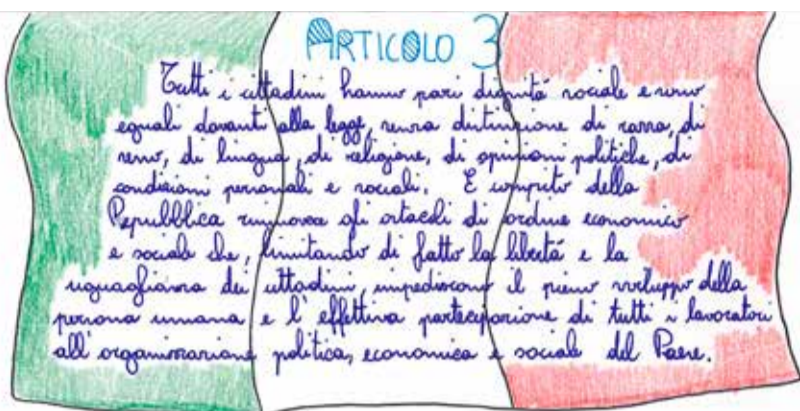 ARTICOLO 3
Tutti i cittadini hanno pari dignitá sociale e sono
eguali davanti alla legge, senza distinzione di razza, di
sesso, di lingua, di religione, di opinioni politiche, di
condizioni personali e sociali. É compito della
Repubblica rimuovere gli ostacoli di ordine economico
e sociale che, limitando di fatto la libertá e la
uguaglianza dei cittadini, impediscono il pieno sviluppo della
persona umana e l'effettiva partecipazione di tutti i lavoratori
all'organizzazione politica, economica e sociale del Paese.